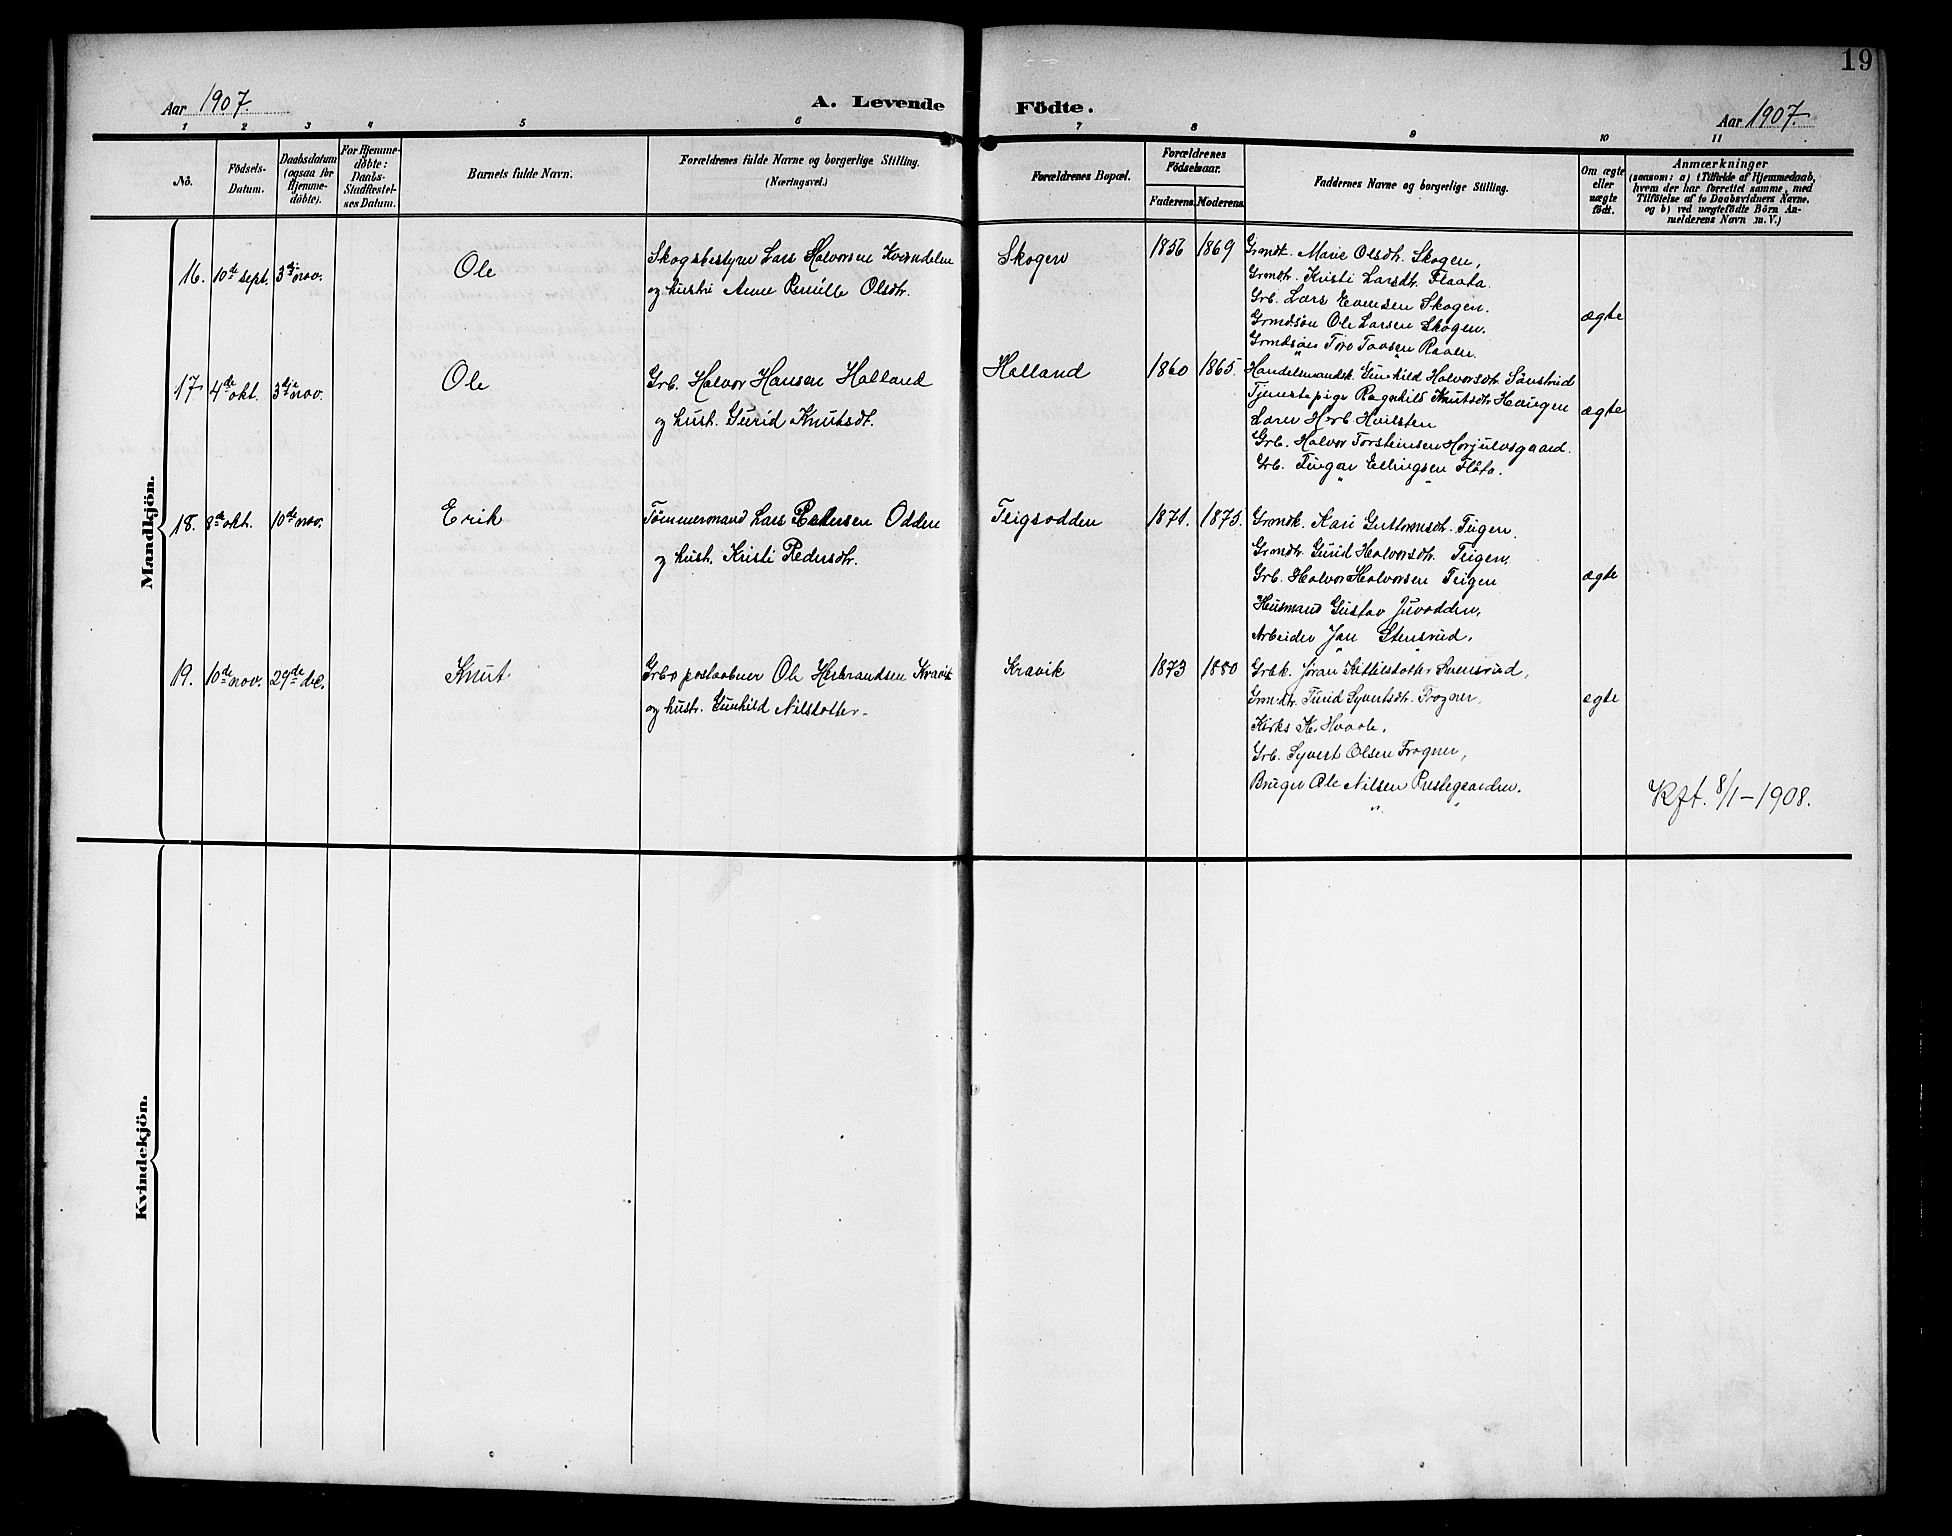 19
Aar 1907.
A. Levende Födte.
Aar 1907.
1 2 3 4 5 6 7 8 9 10 11
No.
Födsels-Datum.
Daabsdatum (ogsaa for Hjemmedöbte).
For Hjemmedöbte: Daabs-Stadfæstelses Datum.
Barnets fulde Navn.
Forældrenes fulde Navne og borgerlige Stilling.
(Næringsvei.)
Forældrenes Bopæl.
Forældrenes Födselsaar.
Faderens. Moderens.
Faddernes Navne og borgerlige Stilling.
Om ægte eller uægte födt.
Anmærkninger
(saasom: a) i Tilfælde af Hjemmedaab,
hvem der har forrettet samme, med
Tilföielse af to Daabsvidners Navne,
og b) ved uægtefödte Börn An-
melderens Navn m. V.)
Mandkjön.
16. 10de sept. 3die nov. Ole
Skogsbestyrer Lars Halvorsen
og hustru Anne Pernille Olsdtr.
Skogen 1856 1869
Grmdt. Marie Olsdtr. Skogen,
Grmdtr. Kristi Larsdtr. Flaata.
Grb. Lars Evensen Skogen.
Grmdsøn Ole Larsen Skogen.
Grmdsøn Tore Tovsen
ægte
17 4de okt. 3die nov. Ole
Grb. Halvor Hansen Halland
og hust. Gurid Knutsdt.
Halland 1860 1865.
Handelsmandsk. Gunhild Halvorsdtr. Sönstrud
Tjenestepige Ragnhild Knutsdtr. Haugen
Lærer Herb. Hvilsten
Grb. Halvor Torsteinsen Horjulvsgaard.
Grb. Tingar Ellingsen Flåta.
ægte
18. 8de okt. 10de nov. Erik
Tømmermand Lars Pedersen Odden
og hust. Kristi Pedersdtr.
Teigsodden 1871. 1875.
Grmdk. Kari Gustavsdtr. Teigen.
Grmdtr. Gurid Halvorsdtr. Teigen.
Grb. Halvor Halvorsen Teigen
Husmand Gustav Juvodden,
Arbeider Jan Stensrud,
ægte
19. 10de nov. 29de de. Knut
Grb. postaabner Ole Herbrandsen Kravik
og hustr. Gunhild Nilsdotter.
Kravik 1873 1880
Grbk. Jøran Kittilsdotter Svensrud,
Grmdtr. Turid Syvertsdtr. Frogner,
Kirks. K. Hvaale,
Grb. Syvert Olsen Frogner,
Bruger Ole Nilsen Prestegaarden.
ægte
Kft. 8/1-1908.
Kvindekjön.